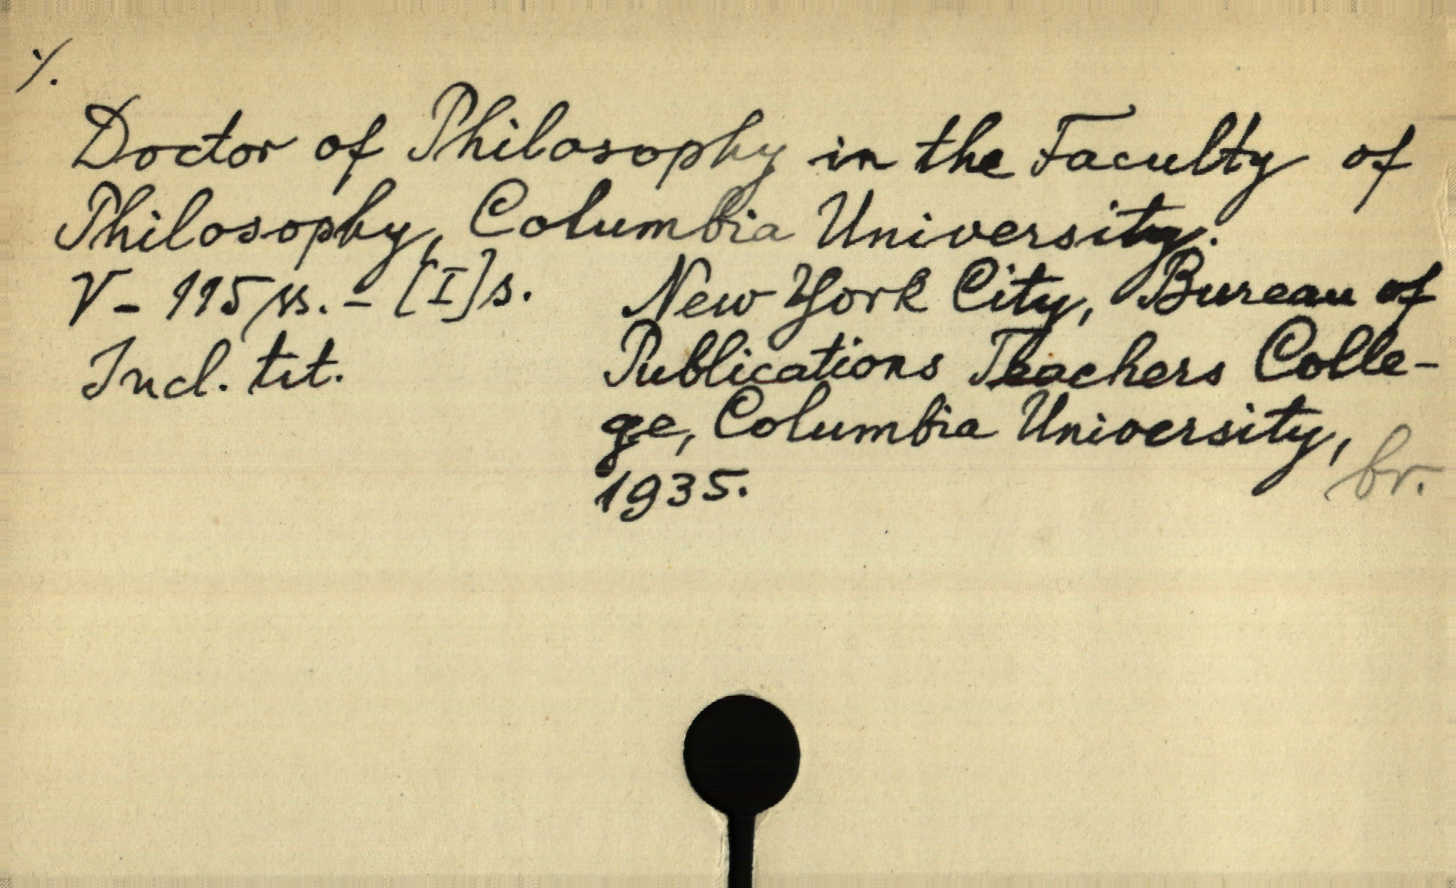 ./.
Doctor of Philosophy in the Faculty of
Philosophy, Columbia University.
V - 115 ss. - [I] s.
Incl. tit.
New York City, Bureau of
Publications Teachers Colle-
ge, Columbia University,
1935.
br.